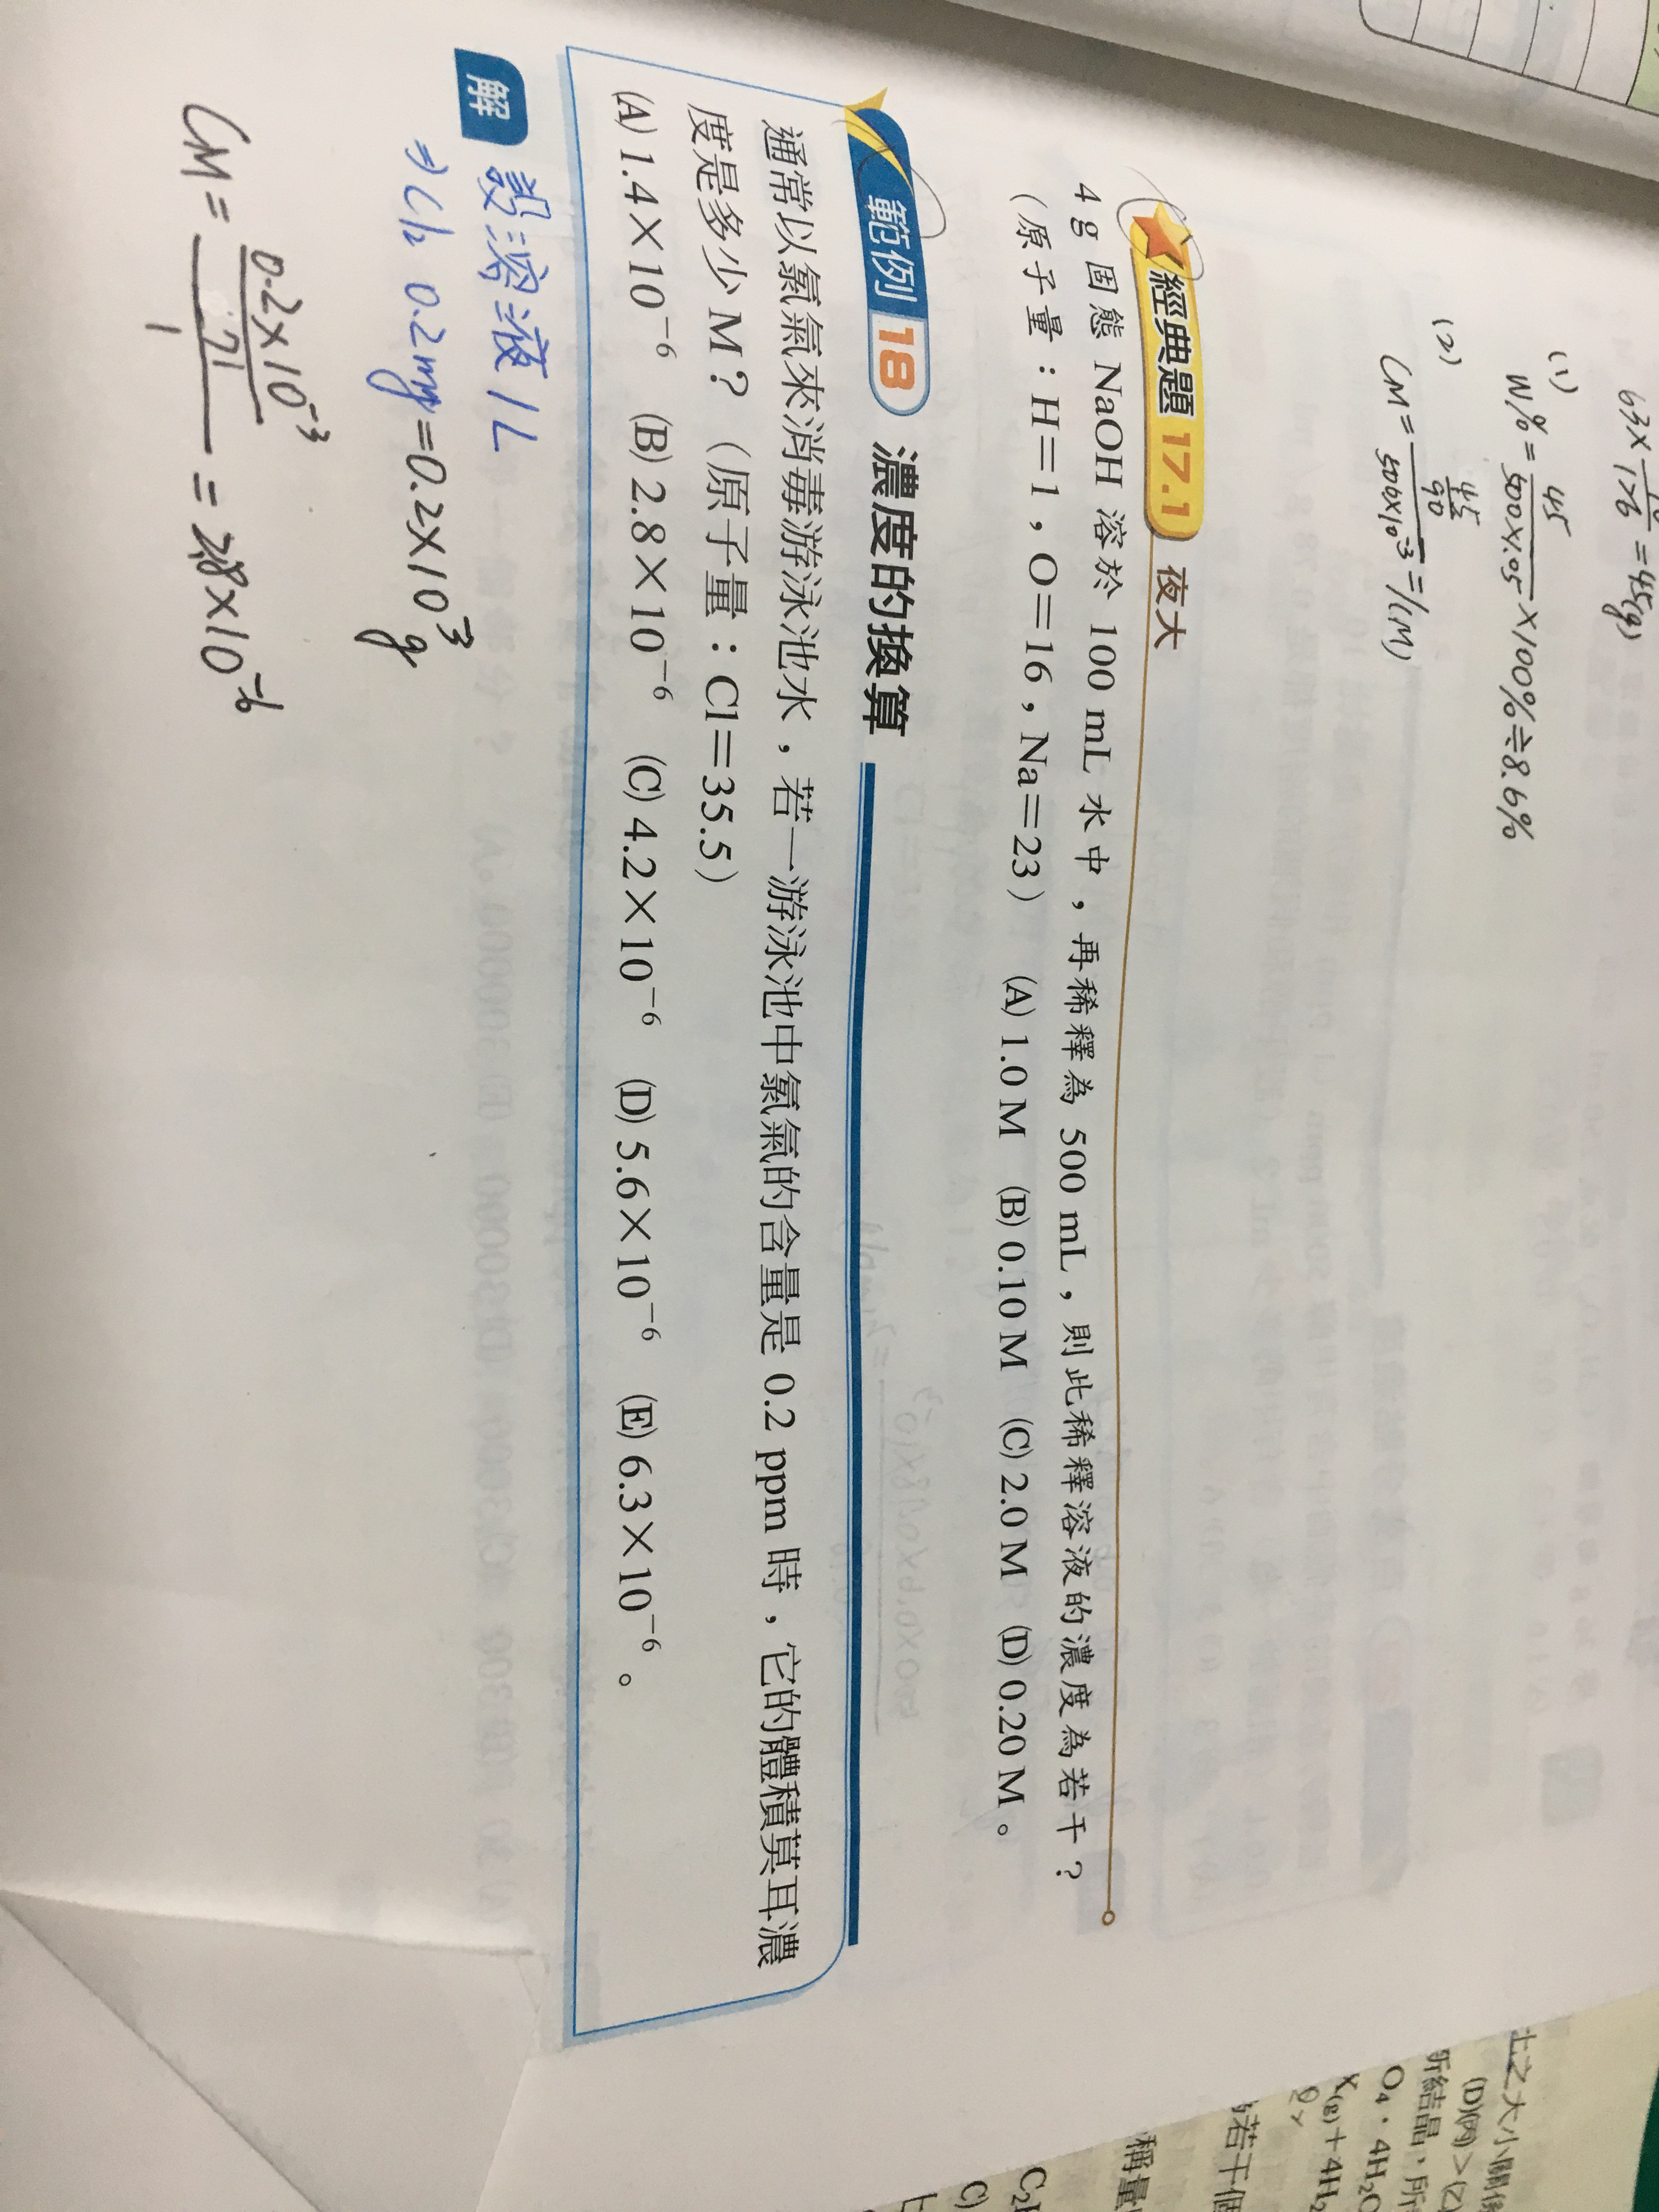 63×
126
=45(g)
(1)
W% = 45 / 500×1.05 ×100%≒8.6%
(2)
CM = 45/90 / 500×10⁻³ = 1(M)
經典題 17.1 夜大
4 g 固態 NaOH 溶於 100 mL 水中，再稀釋為 500 mL，則此稀釋溶液的濃度為若干？
（原子量：H＝1，O＝16，Na＝23） (A) 1.0 M (B) 0.10 M (C) 2.0 M (D) 0.20 M。
範例 18 濃度的換算
通常以氯氣來消毒游泳池水，若一游泳池中氯氣的含量是 0.2 ppm 時，它的體積莫耳濃
度是多少 M？（原子量：Cl＝35.5）
(A) 1.4×10⁻⁶ (B) 2.8×10⁻⁶ (C) 4.2×10⁻⁶ (D) 5.6×10⁻⁶ (E) 6.3×10⁻⁶。
解 設溶液 1L
⇒ Cl₂ 0.2mg=0.2×10⁻³g
CM = 0.2×10⁻³/71 / 1 = 2.8×10⁻⁶
士之大小關係
(D)(丙)＞(乙)
所結晶，所
O₄．4H₂O
X(g)＋4H₂
若干個
稱量
C₂
C)